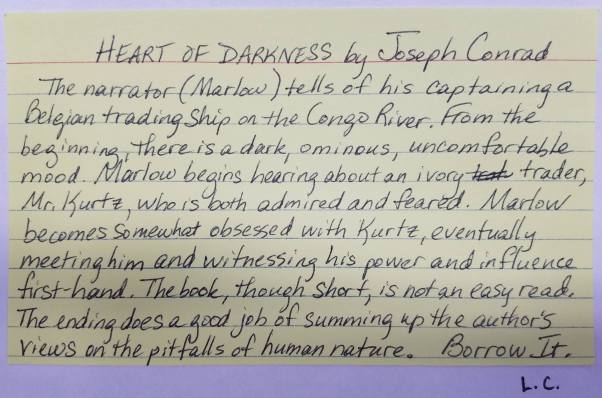 HEART OF DARKNESS by Joseph Conrad
The narrator (Marlow) tells of his captaining a
Belgian trading ship on the Congo River. From the
beginning, there is a dark, ominous, uncomfortable
mood. Marlow begins hearing about an ivory trader,
Mr. Kurtz, who is both admired and feared. Marlow
becomes somewhat obsessed with Kurtz, eventually
meeting him and witnessing his power and influence
first-hand. The book, though short, is not an easy read.
The ending does a good job of summing up the author's
views on the pitfalls of human nature. Borrow It.
L.C.